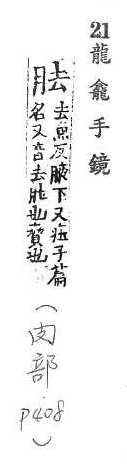 21 龍龕手鏡
胠 去魚反腋下又莊子篇
名又音去也也
(肉部 P408)